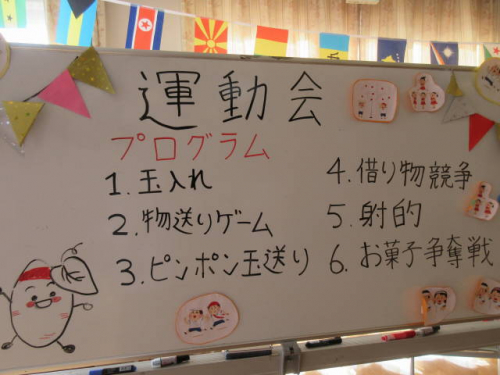 運動会
プログラム
1. 玉入れ
2. 物送りゲーム
3. ピンポン玉送り
4. 借り物競争
5. 射的
6. お菓子争奪戦